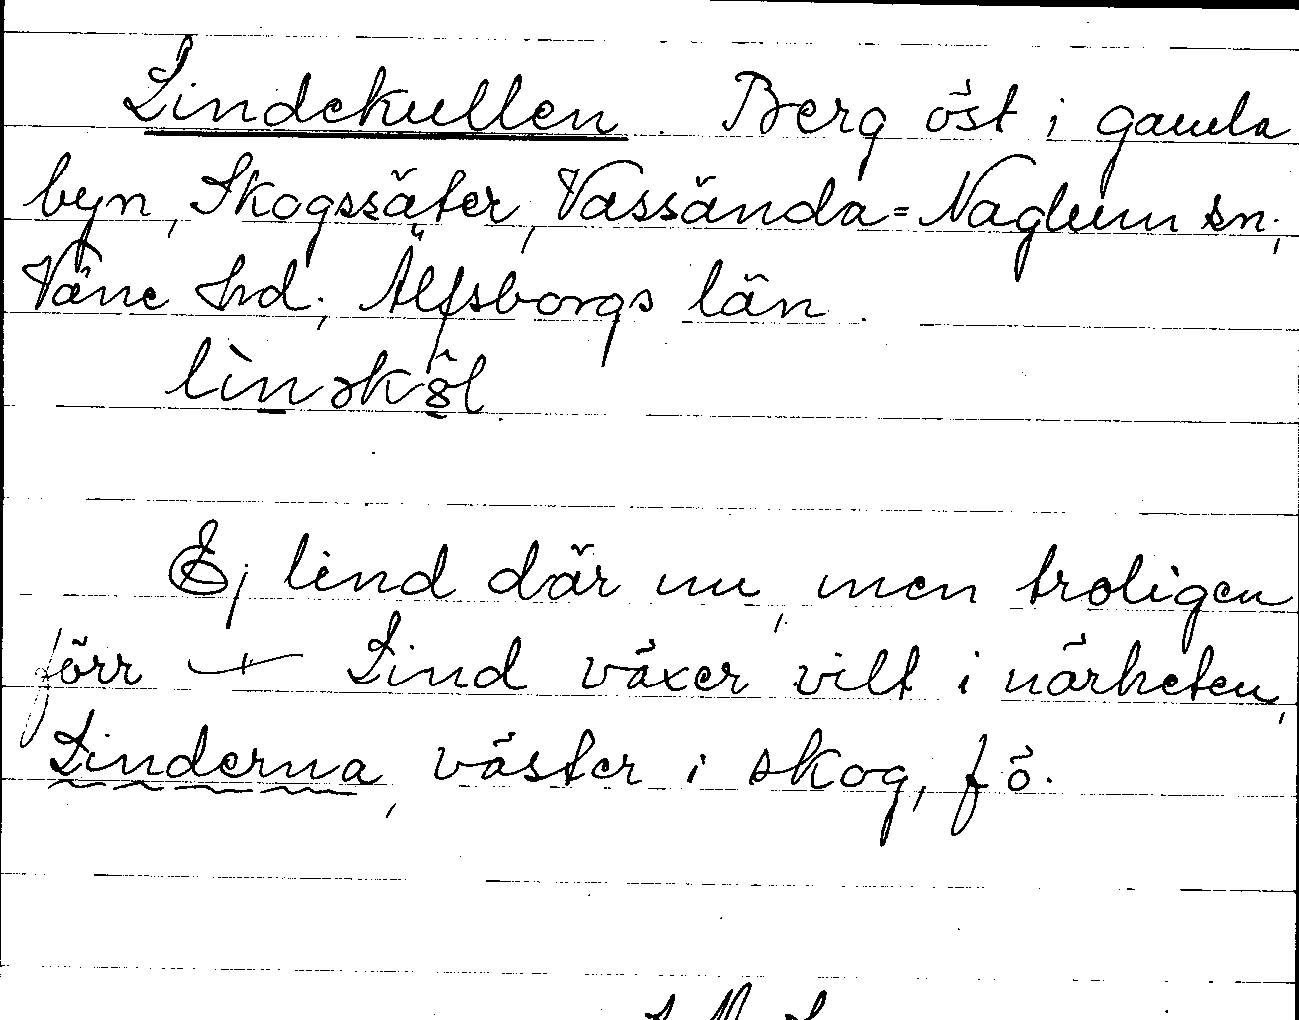 Lindekullen. Berg öst i gamla
byn, Skogssäter, Vassända=Naglum sn,
Väne hd, Älfsborgs län.
Ej lind där nu, men troligen
förr + Lind växer vilt i närheten,
Linderna, väster i skog, fö.